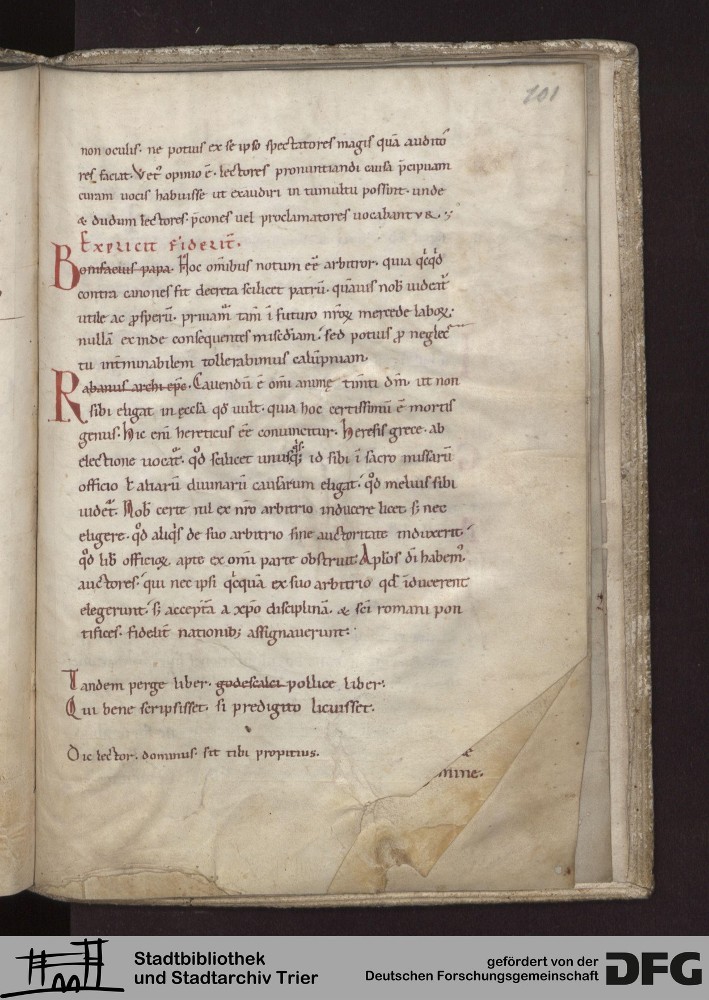 101
non oculis· ne potius ex se ipso spectatores magis quā audito
res faciat· Vet᷒ opinio ē· lectores pronuntiandi causa p̄cipuam
curam uocis habuisse ut exaudiri in tumultu possint· unde
& dudum lectores· p̄cones uel proclamatores uocabant᷒&·
Explicit fideliť·
Bonifacius papa· Hoc omībus notum eē arbitror· quia qͥcqͥd
contra canones fit decreta scilicet patrū· quāuis nob̄ uideat᷒
utile ac ꝓsperū· priuam᷒ tam̄ ī futuro nr̄oꝝ mercede laboꝝ·
nullā exinde consequentes misc̄diam· sed potius ꝓ neglec
tu intm̄inabilem tollerabimus calūpniam·
Rabanus archi ep̄c· Cauendū ē om̄i anime timn̄ti dm̄· ut non
sibi eligat in eccl̄a qd̄ uult· quia hoc certissimū ē mortis
genus· Hic eni hereticus eē conuincitur· Heresis grece· ab
electione uocat᷒· qd̊ scilicet unusqͥsqꝫ id sibi ī sacro missarū
officio ł aliarū diuinarū causarum eligat· qd̊ melius sibi
uidet᷒· Nob̄ certe nil ex nr̄o arbitrio inducere licet· sꝫ nec
eligere· qd̊ aliqͥs de suo arbitrio sine auctoritate induxerit·
qd̊ lib̄ officioꝝ apte ex om̄i parte obstruit· Apl̄os dī habem᷒
auctores· qui nec ipsi qͥcquā ex suo arbitrio qd̄ īducerent
elegerunt· sꝫ acceptā a xp̄o disciplinā· & sc̄i romani pon
tifices· fidelit̄ nationibꝫ assignauerunt·
Tandem perge liber· godescalci pollice liber·
Qui bene scripsisset· si predigito licuisset·
Dic lector· dominus· sit tibi propitius·
e
mine·
Stadtbibliothek
und Stadtarchiv Trier
gefördert von der
Deutschen Forschungsgemeinschaft
DFG